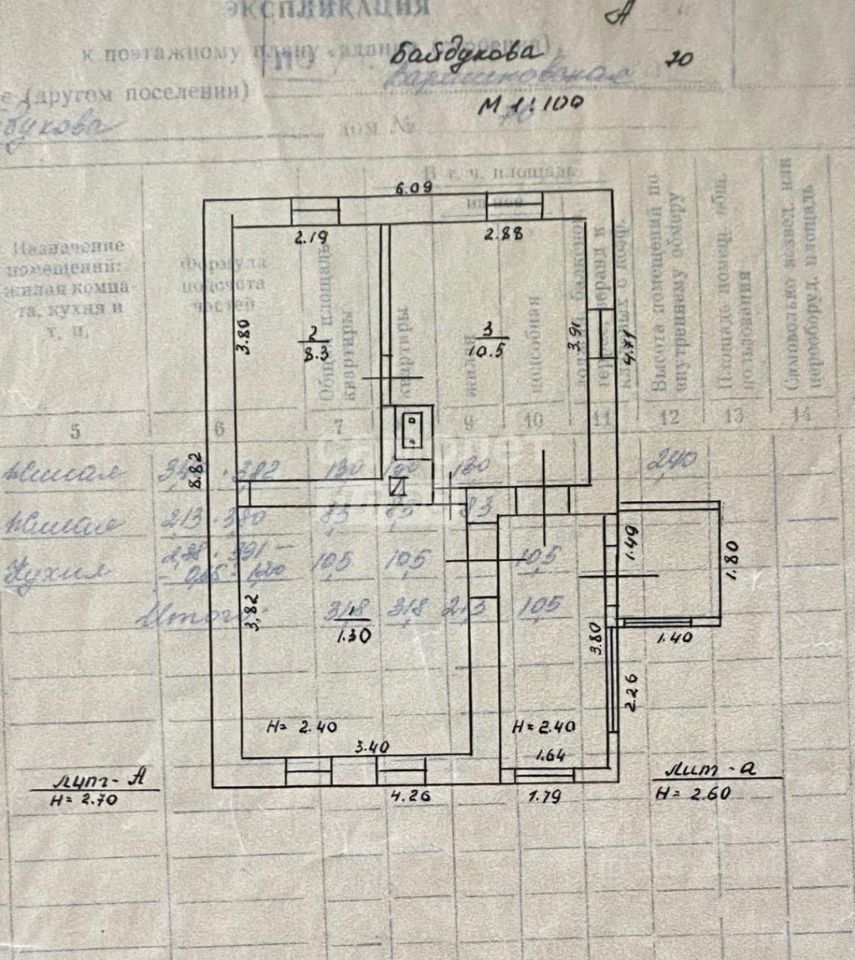 ЭКСПЛИКАЦИЯ
А
к поэтажному плану здания
Байдукова 70
е (другом поселении)
М 1:100
дом №
В т. ч. площадь
Назначение помещений: жилая комната, кухня и т. п.
Формула подсчета частей
Общая площадь квартиры
квартиры
жилая
подсобная
Высота помещений по внутреннему обмеру
Площадь помещ. общ. пользования
Самовольно возвед. или переоборуд. площадь
5 6 7 9 10 11 12 13 14
6.09
2.19
2.88
3.80
2
8.3
3
10.5
3.91
4.71
8.82
Жилая 130 130 130 2,40
Жилая 2,13 · 3,80 8,3 8,3 8,3
Кухня 10,5 10,5 10,5
Итого: 31,8 31,8 21,3 10,5
1.49
1.80
1.40
3,82
1
1.30
3.80
2.26
Н= 2.40
Н=2.40
3.40
1.64
лит- А
Н= 2.70
4.26
1.79
лит- а
Н= 2.60